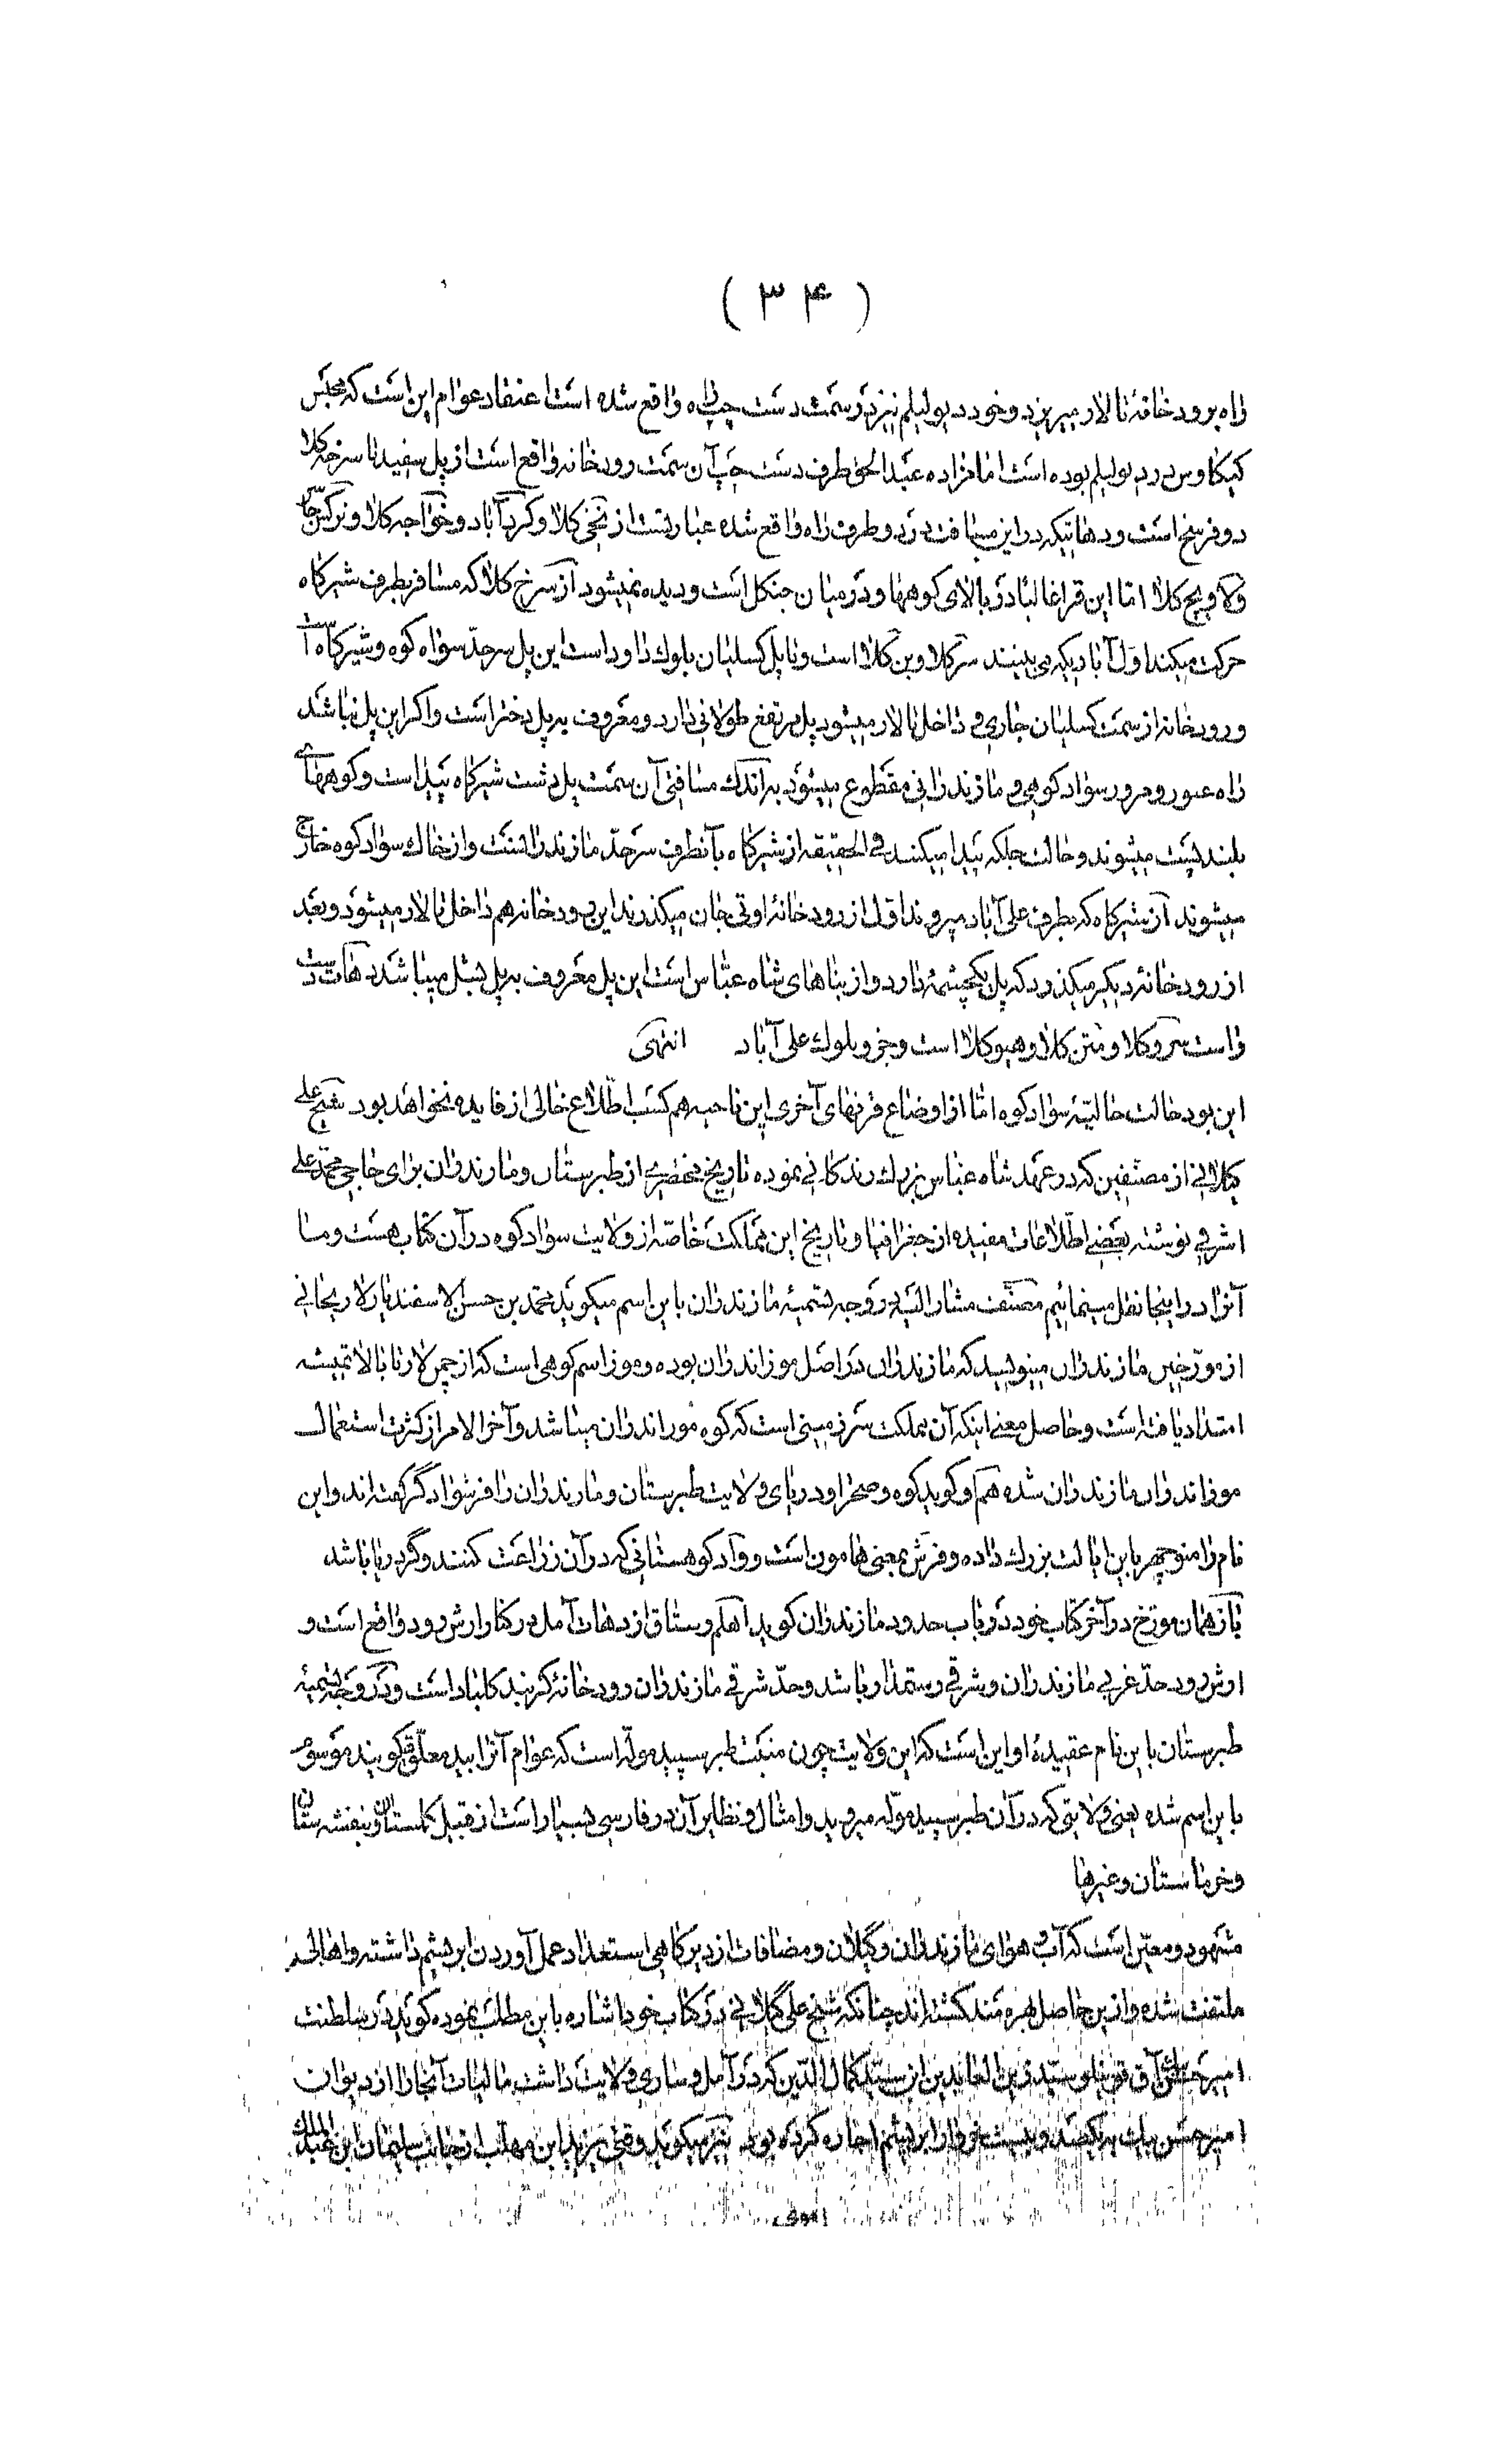 ( ۳۴ )
راه برودخانهٔ تالار میریزد و خود دیولیلم نیز در سمت دست چپ راه واقع شده است اعتقاد عوام این است که محبس
کیکاوس در دیولیلم بوده است امامزاده عبدالحق طرف دست چپ آن سمت رودخانه واقع است از پل سفید تا سرخه کلا
دو فرسخ است و دهاتیکه در این مسافت در دو طرف راه واقع شده عبارتست از نخی کلا و کردآباد و خواجه کلا و نرکس جا
ولاویج کلا اما این قرا غالبا در بالای کوهها و در میان جنکل است و دیده نمیشود از سرخ کلا که مسافر بطرف شیرکاه
حرکت میکند اول آبادیکه می بینند سرکلا و بن کلا است و تا پل کسلیان بلوک داود است این پل سرحد سواد کوه و شیرکاه است
و رودخانه از سمت کسلیان جاری و داخل تالار میشود پل مرتفع طولانی دارد و معروف به پل دختر است و اکر این پل نباشد
راه عبور و مرور سواد کوهی و مازندرانی مقطوع میشود به اندک مسافتی آن سمت پل دشت شیرکاه پیدا است و کوههای
بلند پست میشوند و حالت جلکه پیدا میکنند فی الحقیقه از شیرکاه بآنطرف سرحد مازندرانست و از خاک سواد کوه خارج
میشوند از شیرکاه که بطرف علی آباد میروند اول از رودخانهٔ اوتی جان میکذرند این رودخانه هم داخل تالار میشود و بعد
از رودخانهٔ دیکر میکذرد که پل یکچشمهٔ دارد و از بناهای شاه عباس است این پل معروف به پل بشل میباشد دهات دست
راست سروکلا و متن کلا و هیوکلا است و جزو بلوک علی آباد انتهی
این بود حالت حالیهٔ سواد کوه اما از اوضاع قرنهای آخری این ناحیه هم کسب اطلاع خالی از فایده نخواهد بود شیخ علی
کیلانی از مصنفین که در عهد شاه عباس بزرک زندکانی نموده تاریخ مختصری از طبرستان و مازندران برای حاجی محمد علی
اشرفی نوشته بعضی اطلاعات مفیده از جغرافیا و تاریخ این مملکت خاصه از ولایت سواد کوه در آن کتاب هست و ما
آنرا در اینجا نقل مینمائیم مصنف مشارالیه در وجه تسمیهٔ مازندران باین اسم میکوید محمد بن حسن الاسفندیار لاریجانی
از مورخین مازندران مینویسد که مازندران در اصل موزاندران بوده و موز اسم کوهی است که از جمر لار تا بالا تمیشه
امتداد یافته است و حاصل معنی اینکه آن مملکت سرزمینی است که کوه موز اندران میباشد و آخرالامر از کثرت استعمال
موزاندران مازندران شده هم او کوید کوه و صحرا و دریای ولایت طبرستان و مازندران را فرشوادگر گفته اند و این
نام را منوچهر باین ایالت بزرک داده و فرش بمعنی هامون است و واد کوهستانی که در آن زراعت کنند و گر دریا باشد
باز همان مورخ در آخر کتاب خود در باب حدود مازندران کوید اهلم رستاق از دهات آمل در کنار ارش رود واقع است و
ارش رود حد غربی مازندران و شرقی رستمدار باشد و حد شرقی مازندران رودخانهٔ کرند کلباد است و در وجه تسمیهٔ
طبرستان باین نام عقیدهٔ او این است که این ولایت چون منبت طبر سپید موله است که عوام آنرا بید معلق کویند موسوم
باین اسم شده یعنی ولایتی که در آن طبر سپید موله میروید و امثال و نظایر آن در فارسی بسیار است از قبیل کلستان و بنفشه ستان
و خرماستان و غیرها
مشهود و معین است که آب و هوای مازندران و گیلان و مضافات از دیرکاهی استعداد عمل آوردن ابریشم داشته و اهالی
ملتفت شده و ازین حاصل بهره مند کشته اند چنانکه شیخ علی گیلانی در کتاب خود اشاره باین مطلب نموده کوید در سلطنت
امیر حسن بیک آق قوینلو سید زین العابدین ابن سید کمال الدین که در آمل و ساری ولایت داشت مالیات آنجا را از دیوان
امیر حسن بیک به یکصد و بیست خروار ابریشم اجاره کرده بود نیز میکوید وقتی یزید ابن مهلب از جانب سلیمان ابن عبدالملک